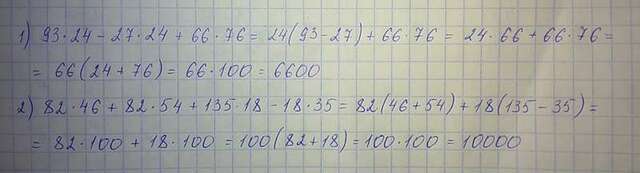 1) 93·24 - 27·24 + 66·76 = 24(93-27) + 66·76 = 24·66 + 66·76 =
= 66(24+76) = 66·100 = 6600
2) 82·46 + 82·54 + 135·18 - 18·35 = 82(46+54) + 18(135-35) =
= 82·100 + 18·100 = 100(82+18) = 100·100 = 10000